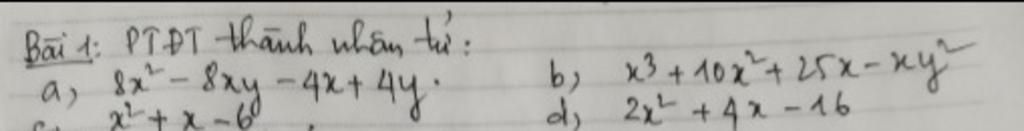 Bài 1: PTĐT thành nhân tử:
a, 8x² - 8xy - 4x + 4y. b, x³ + 10x² + 25x - xy²
x² + x - 6 d, 2x² + 4x - 16